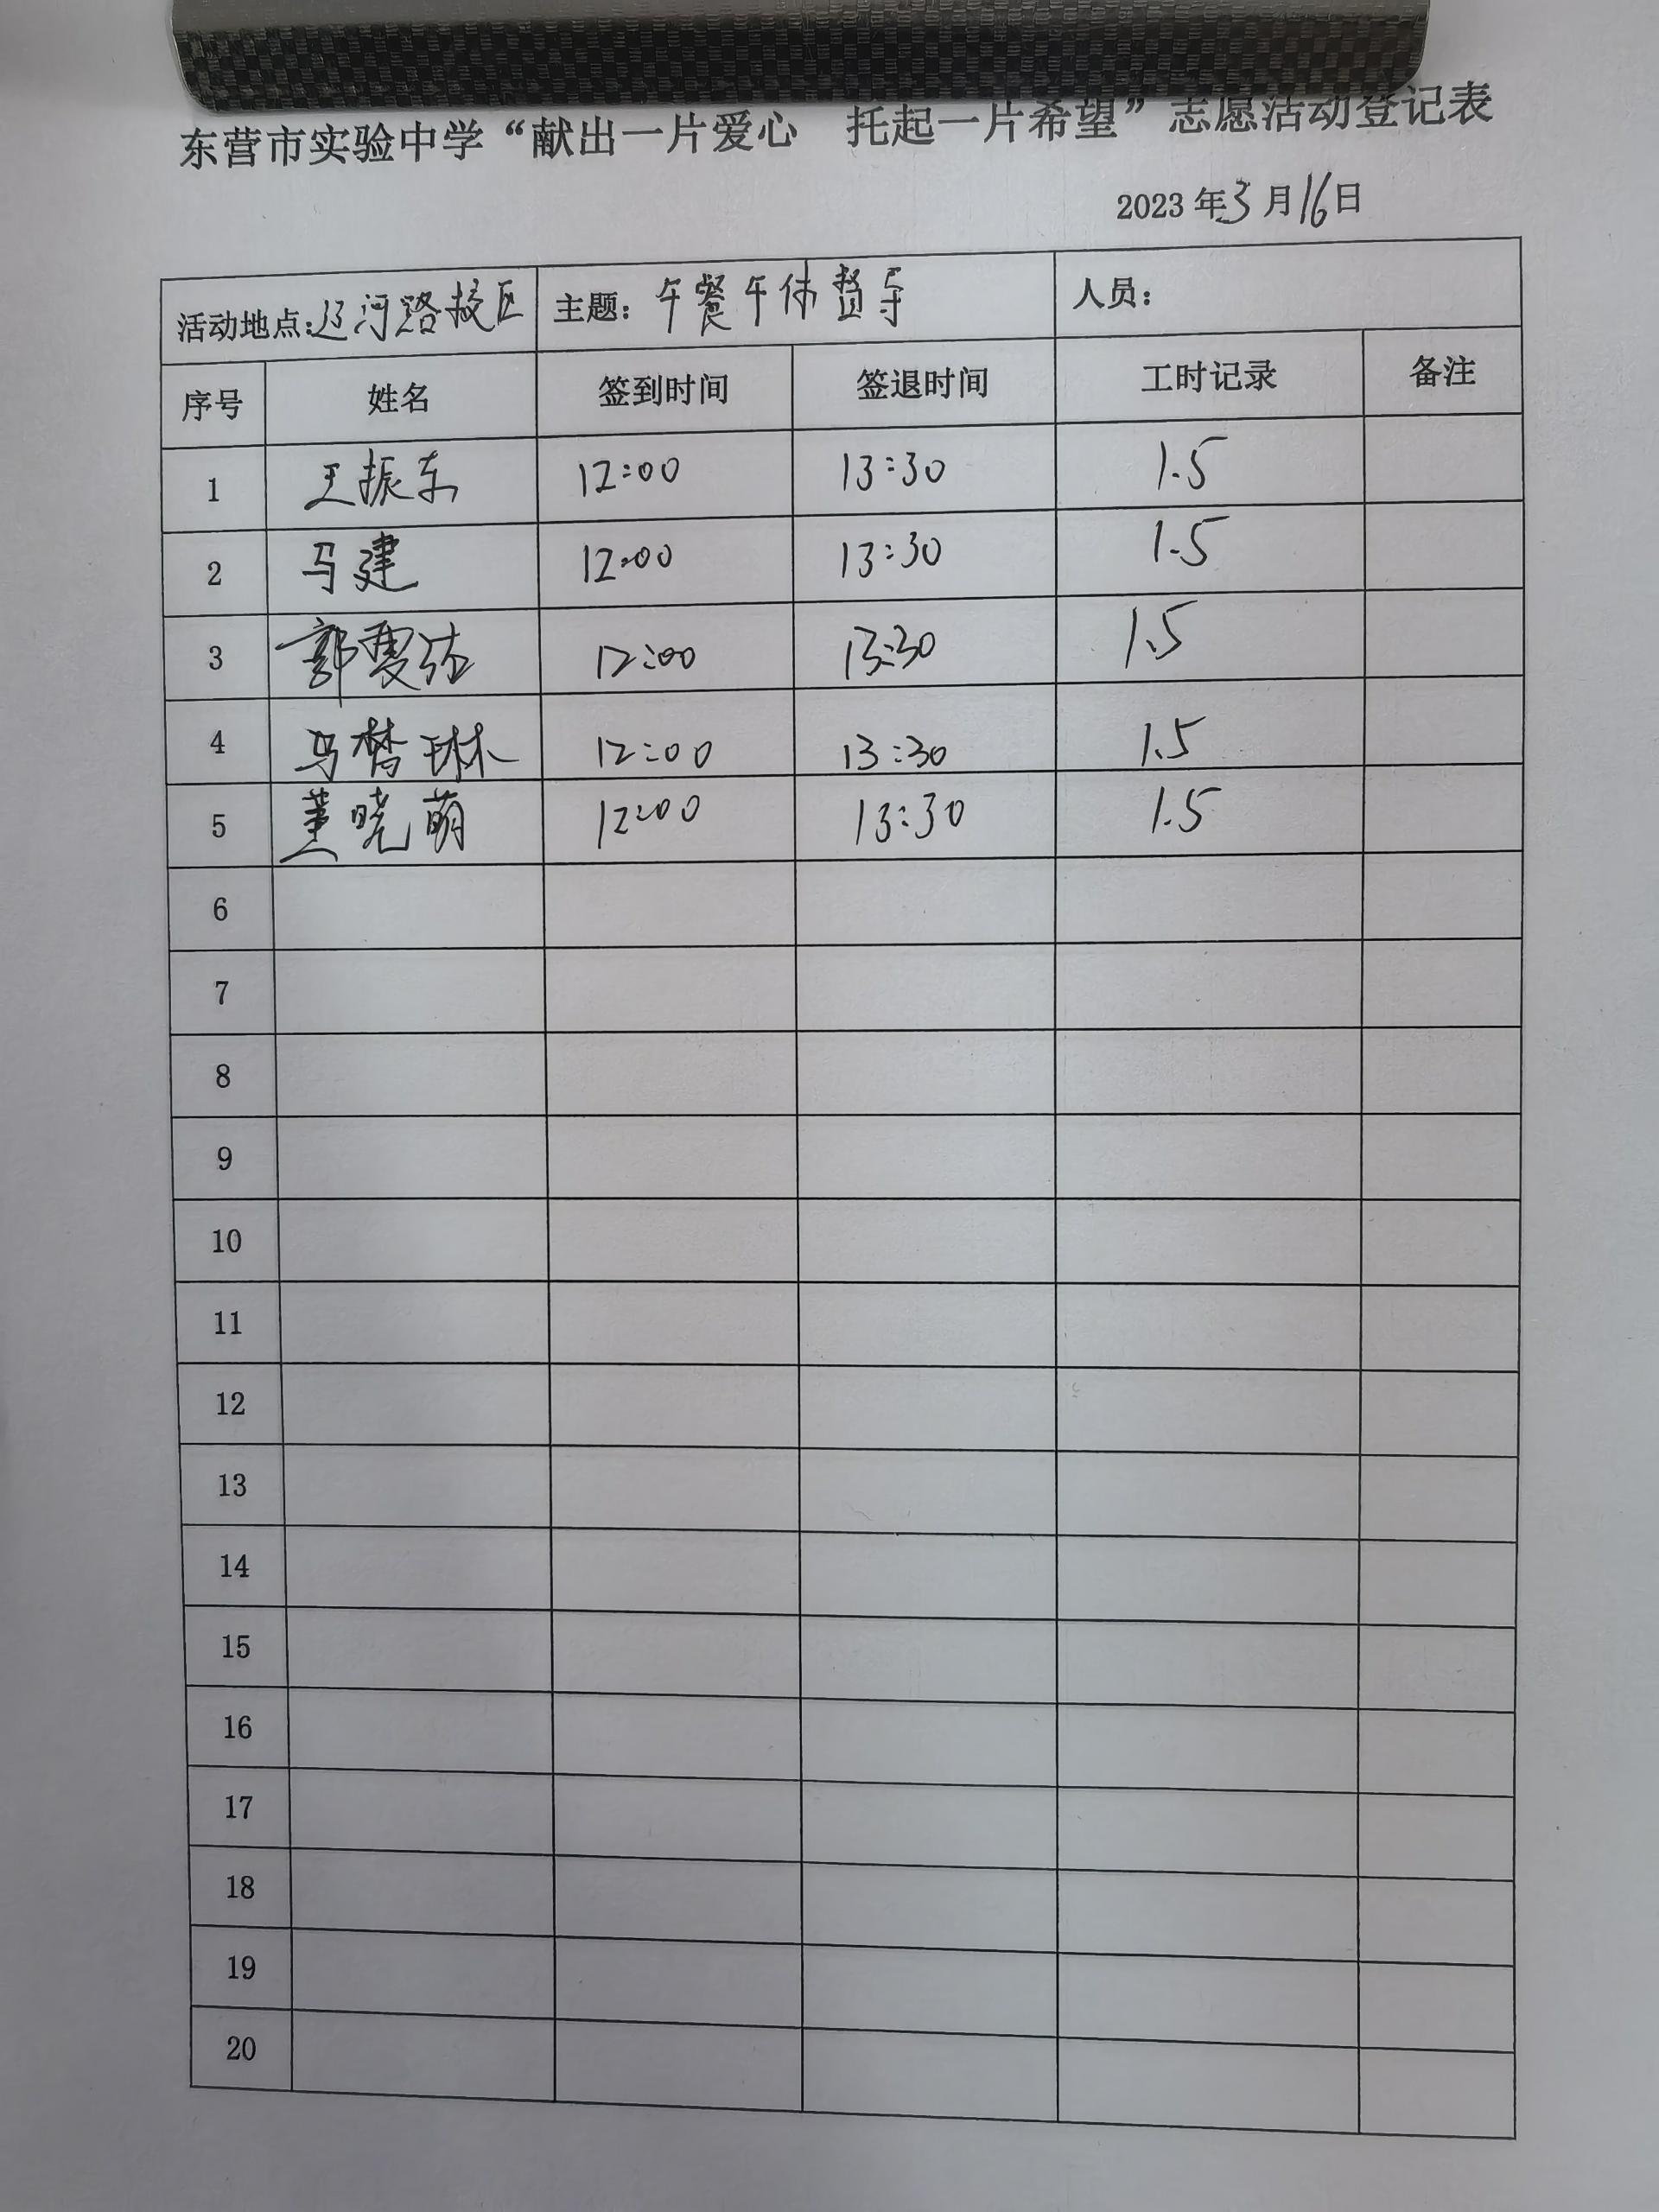 东营市实验中学“献出一片爱心 托起一片希望”志愿活动登记表
2023年3月16日
活动地点:辽河路校区 主题：午餐午休督导 人员：
序号 姓名 签到时间 签退时间 工时记录 备注
1 王振东 12:00 13:30 1.5
2 马建 12:00 13:30 1.5
3 郭雯 12:00 13:30 1.5
4 马梦琳 12:00 13:30 1.5
5 董晓萌 12:00 13:30 1.5
6
7
8
9
10
11
12
13
14
15
16
17
18
19
20